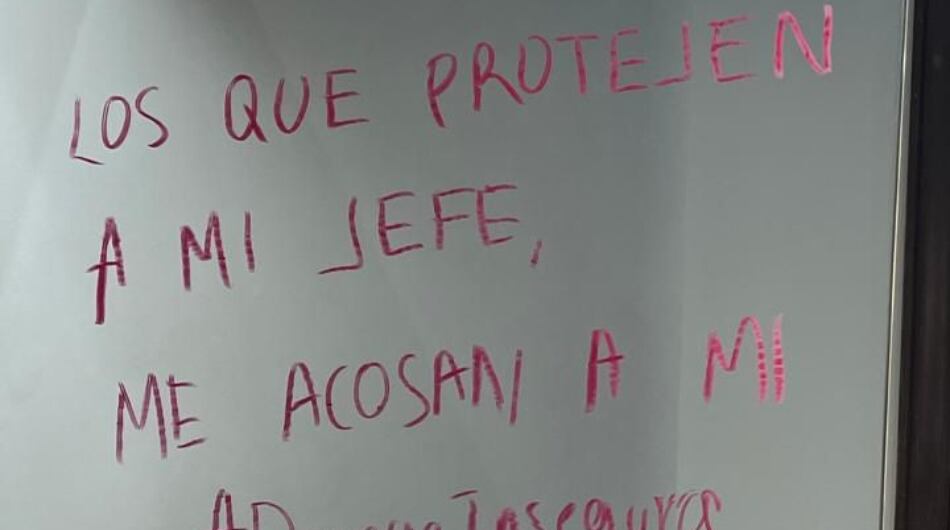 LOS QUE PROTEJEN
A MI JEFE,
ME ACOSAN A MI
Insegura